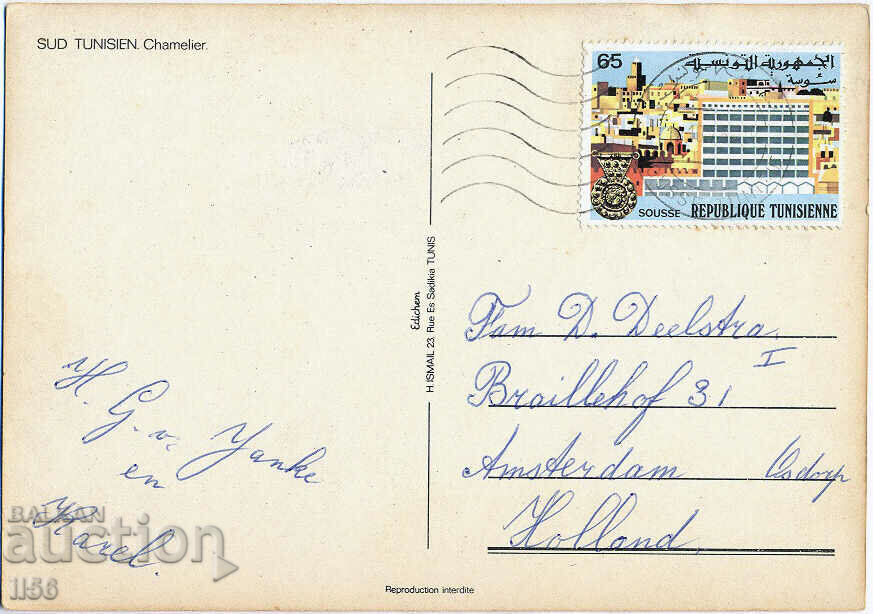 SUD TUNISIEN. Chamelier.
65
الجمهورية التونسية
سوسة
SOUSSE REPUBLIQUE TUNISIENNE
Edichem
H. ISMAIL 23, Rue Es Sadikia TUNIS
Fam D. Deelstra
Braillehof 31 I
Amsterdam Osdorp
Holland
H. G. v. Yanke
en
Karel.
BALKAN
auction
1156
Reproduction interdite